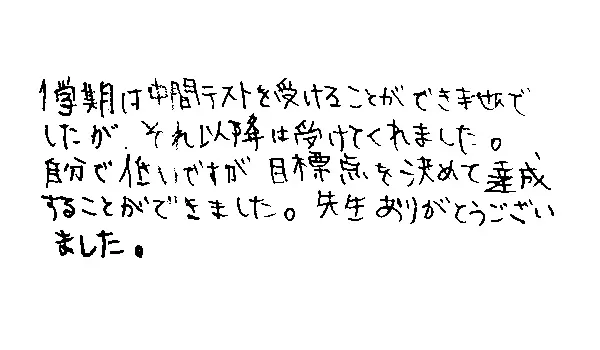 1学期は中間テストを受けることができませんで
したが、それ以降は受けてくれました。
自分で低いですが目標点を決めて達成
することができました。先生ありがとうござい
ました。